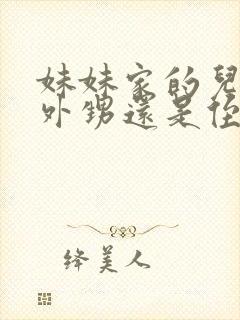 妹妹家的兒
外甥還是侄
絳美人